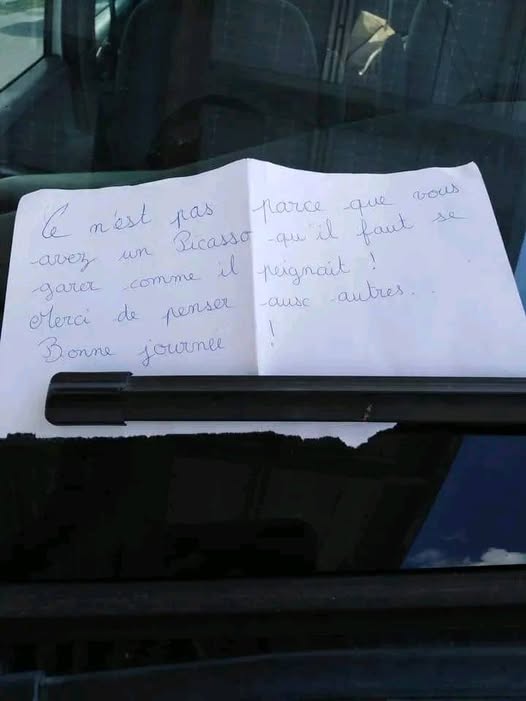 Ce n'est pas parce que vous
avez un Picasso qu'il faut se
garer comme il peignait !
Merci de penser aux autres...
Bonne journée !